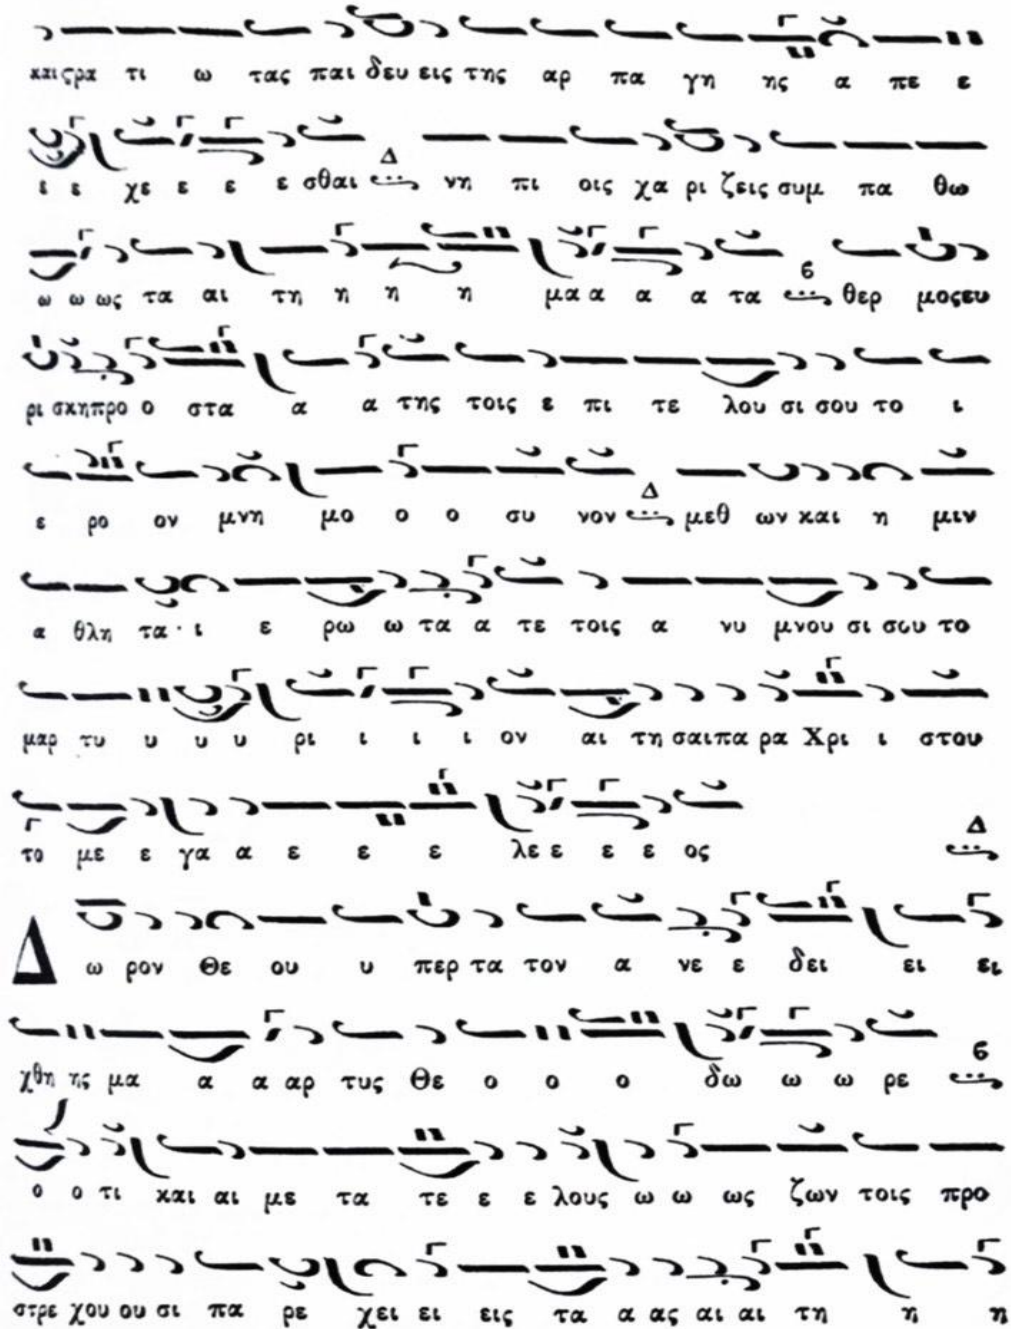 και ςρα τι ω τας παι δευ εις της αρ πα γη ης α πε ε
ε ε χε ε ε ε σθαι Δ νη πι οις χα ρι ζεις συμ πα θω
ω ω ως τα αι τη η η η μα α α α τα 6 θερ μος ευ
ρι σκη προ ο στα α α της τοις ε πι τε λου σι σου το ι
ε ρο ον μνη μο ο ο συ νον Δ μεθ ων και η μιν
α θλη τα ι ε ρω ω τα α τε τοις α νυ μνου σι σου το
μαρ τυ υ υ υ ρι ι ι ι ον αι τη σαι πα ρα Χρι ι στου
το με ε γα α ε ε ε λε ε ε ε ος Δ
Δ ω ρον Θε ου υ περ τα τον α νε ε δει ει ει
χθη ης μα α α αρ τυς Θε ο ο ο δω ω ω ρε 6
ο ο τι και αι με τα τε ε ε λους ω ω ως ζων τοις προ
στρε χου ου σι πα ρε χει ει εις τα α ας αι αι τη η η